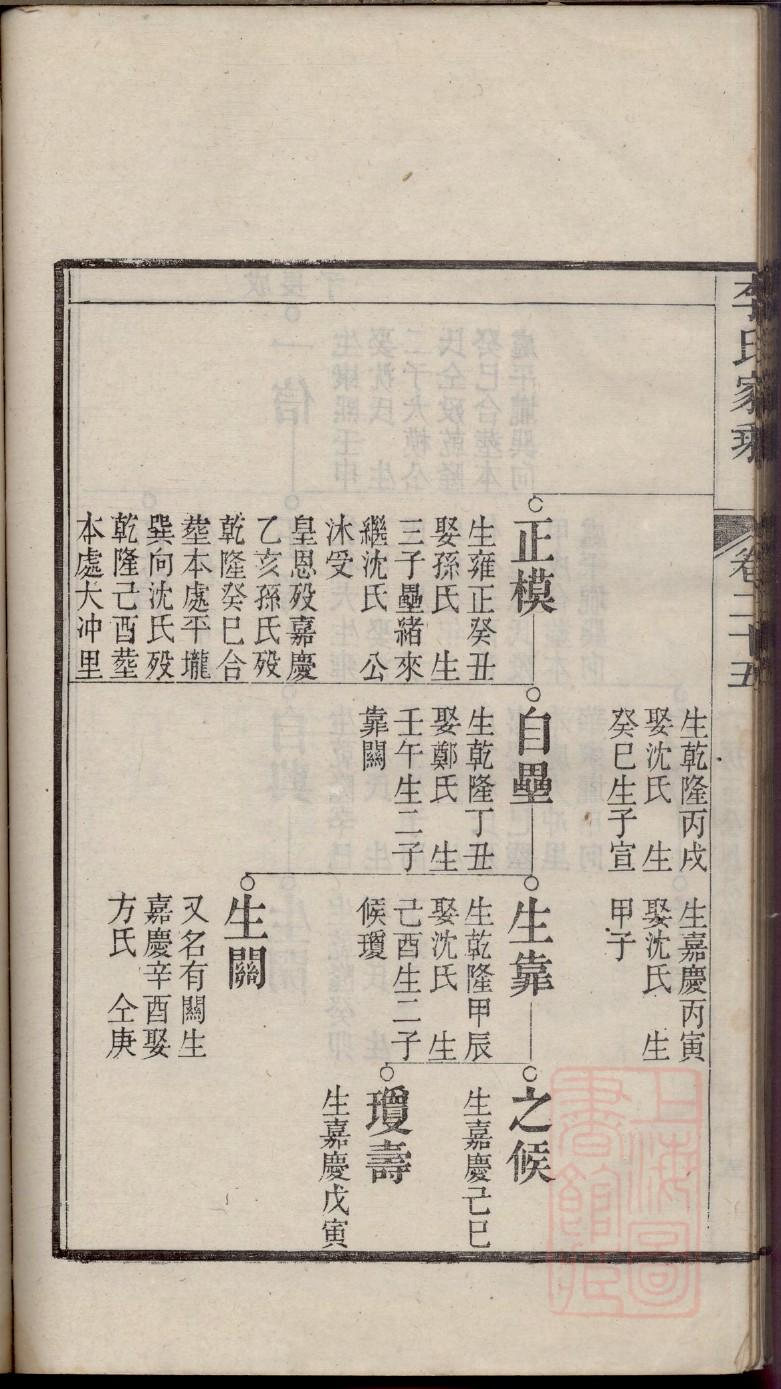 李氏家乘
卷二十五
生乾隆丙戌
娶沈氏 生
癸巳生子宣
生嘉慶丙寅
娶沈氏 生
甲子
正模
生雍正癸丑
娶孫氏 生
三子壘緒來
繼沈氏 公
沐受
皇恩歿嘉慶
乙亥孫氏歿
乾隆癸巳合
塟本處平壠
巽向沈氏歿
乾隆己酉塟
本處大冲里
自壘
生乾隆丁丑
娶鄭氏 生
壬午生二子
靠關
生靠
生乾隆甲辰
娶沈氏 生
己酉生二子
候瓊
之候
生嘉慶己巳
瓊壽
生嘉慶戊寅
生關
又名有關生
嘉慶辛酉娶
方氏 仝庚
上海圖
書館藏